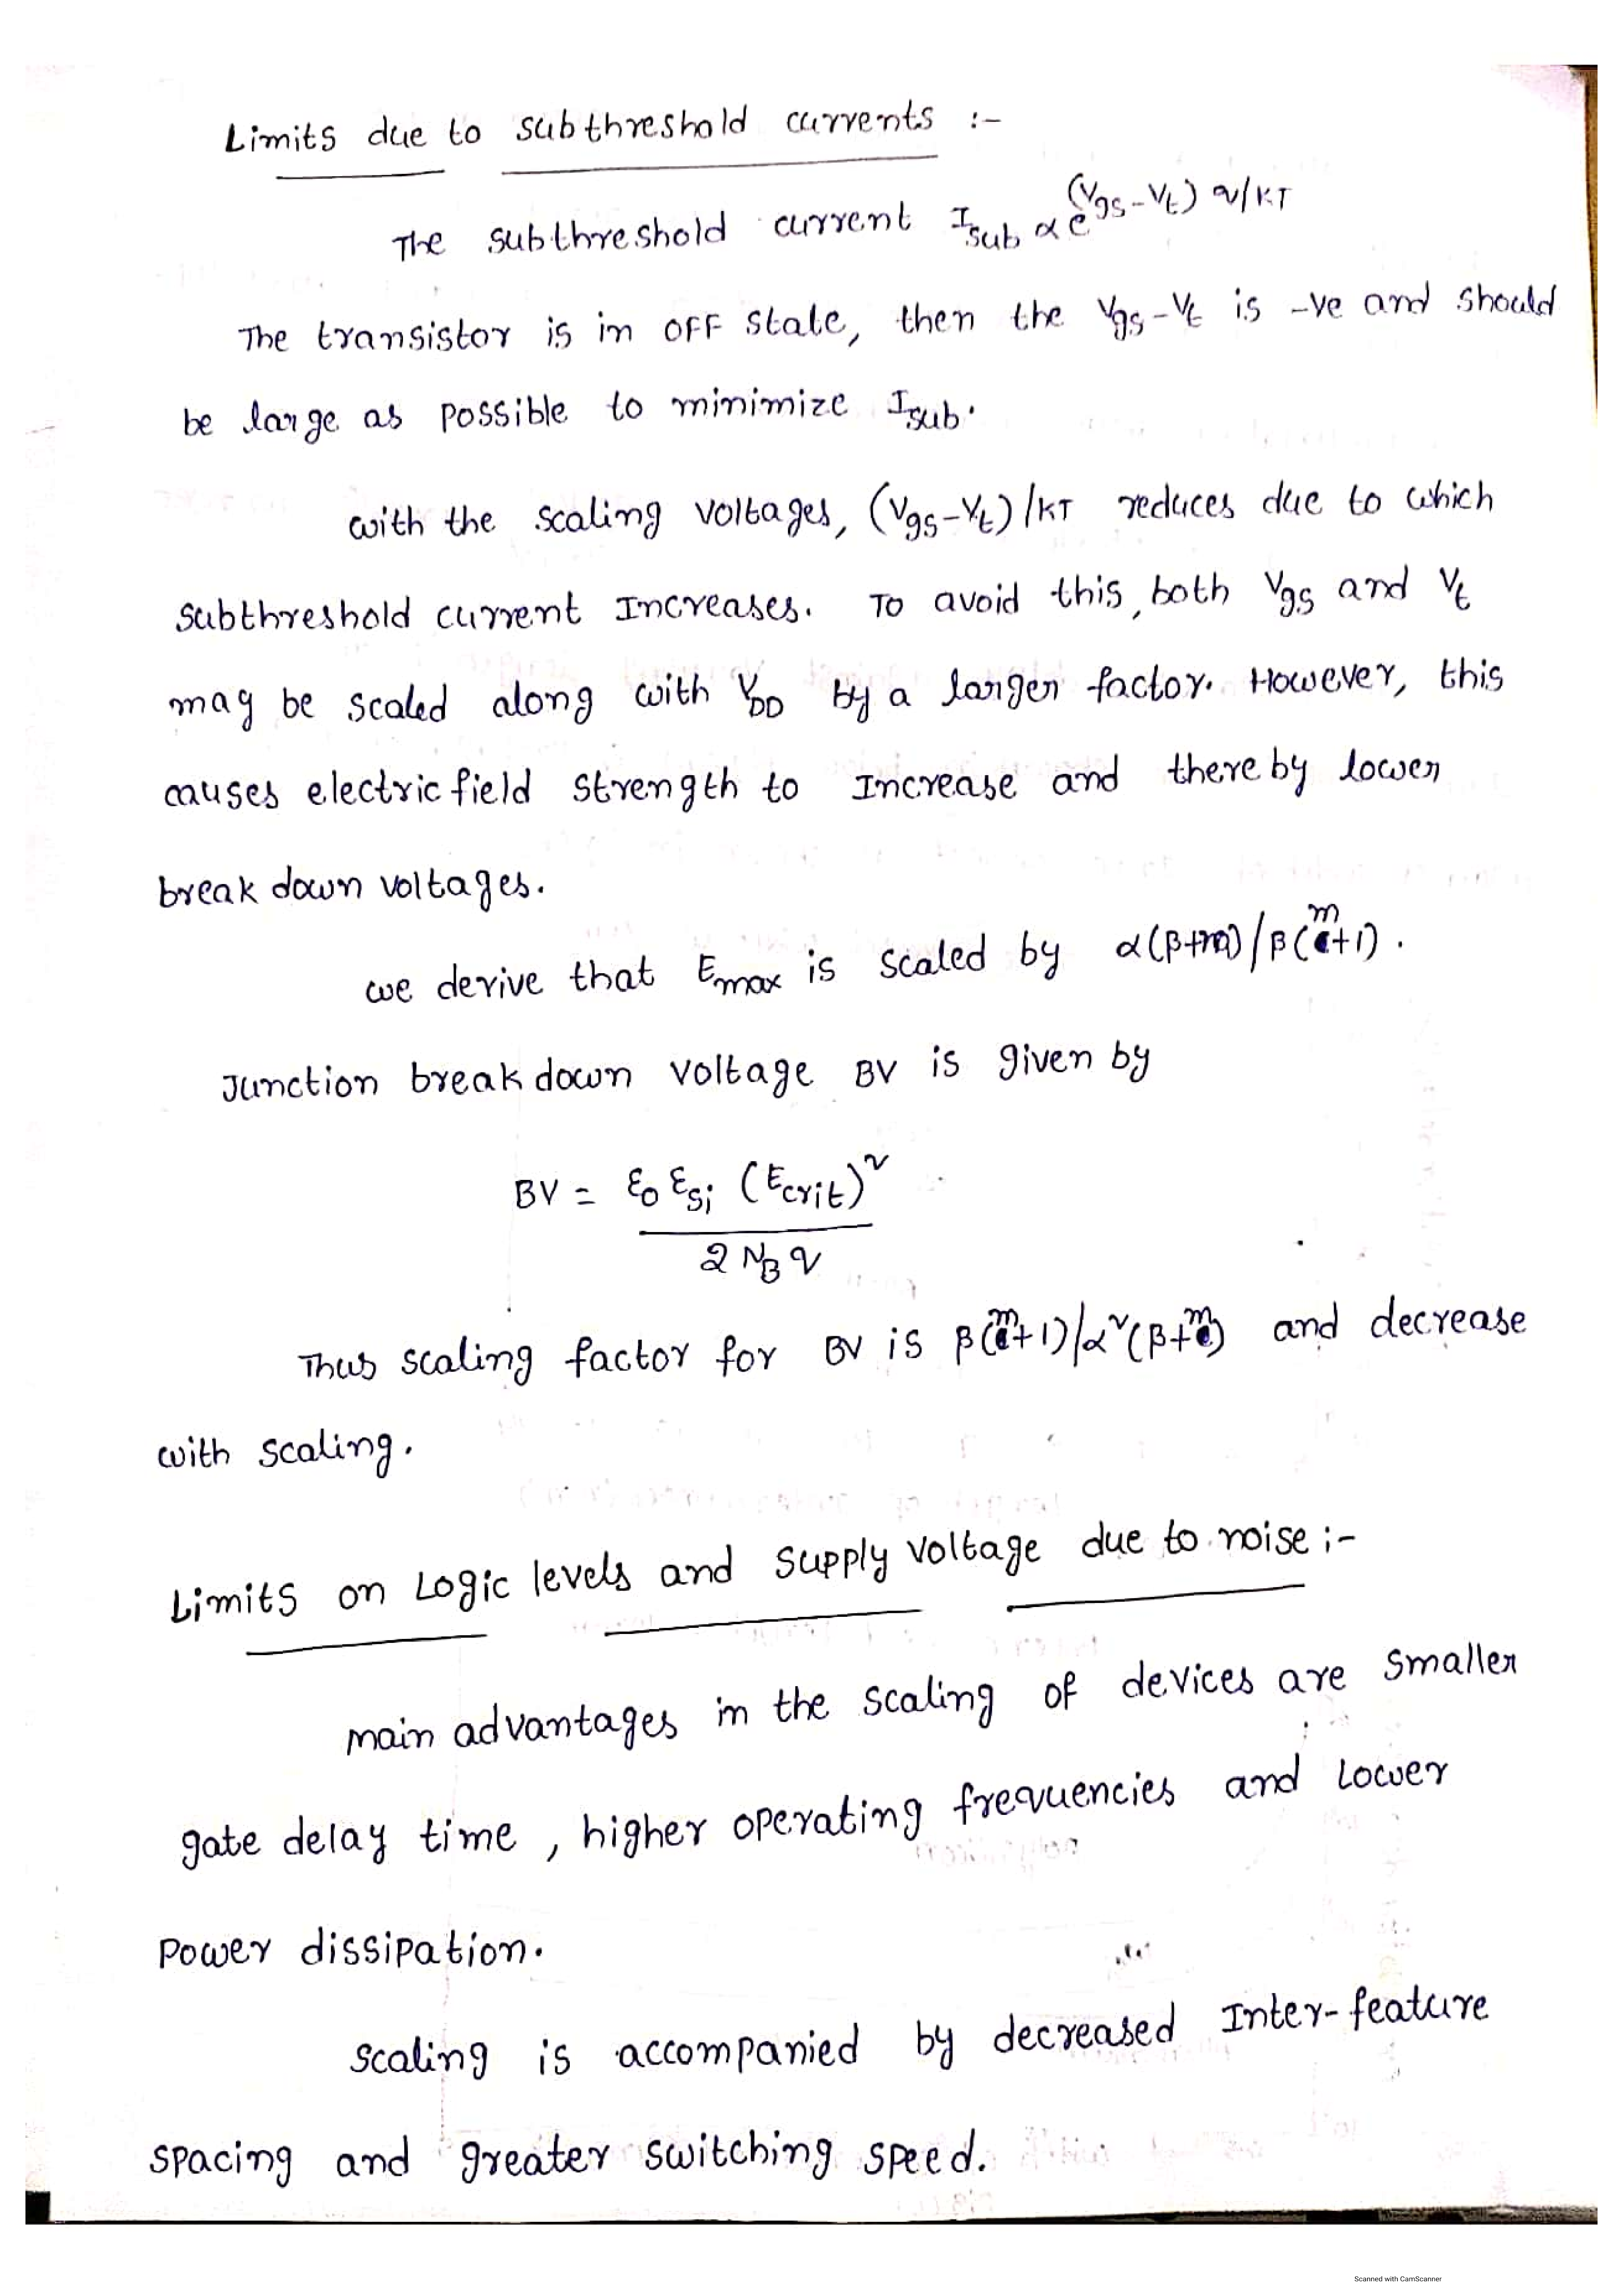 Limits due to subthreshold currents :-
The subthreshold current I_sub ∝ e^(Vgs-Vt) q/KT
The transistor is in OFF state, then the Vgs-Vt is -ve and should
be large as possible to minimize Isub.
with the scaling voltages, (Vgs-Vt)/KT reduces due to which
subthreshold current Increases. To avoid this, both Vgs and Vt
may be scaled along with VDD by a larger factor. However, this
causes electric field strength to Increase and thereby lower
break down voltages.
we derive that Emax is scaled by α(β+m)/β(m+1).
Junction break down voltage BV is given by
BV = ε0 εSi (Ecrit)²
2 NB q
Thus scaling factor for BV is β(m+1)/α²(β+m) and decrease
with scaling.
Limits on Logic levels and supply voltage due to noise :-
main advantages in the scaling of devices are smaller
gate delay time, higher operating frequencies and Lower
Power dissipation.
scaling is accompanied by decreased Inter-feature
spacing and greater switching speed.
Scanned with CamScanner